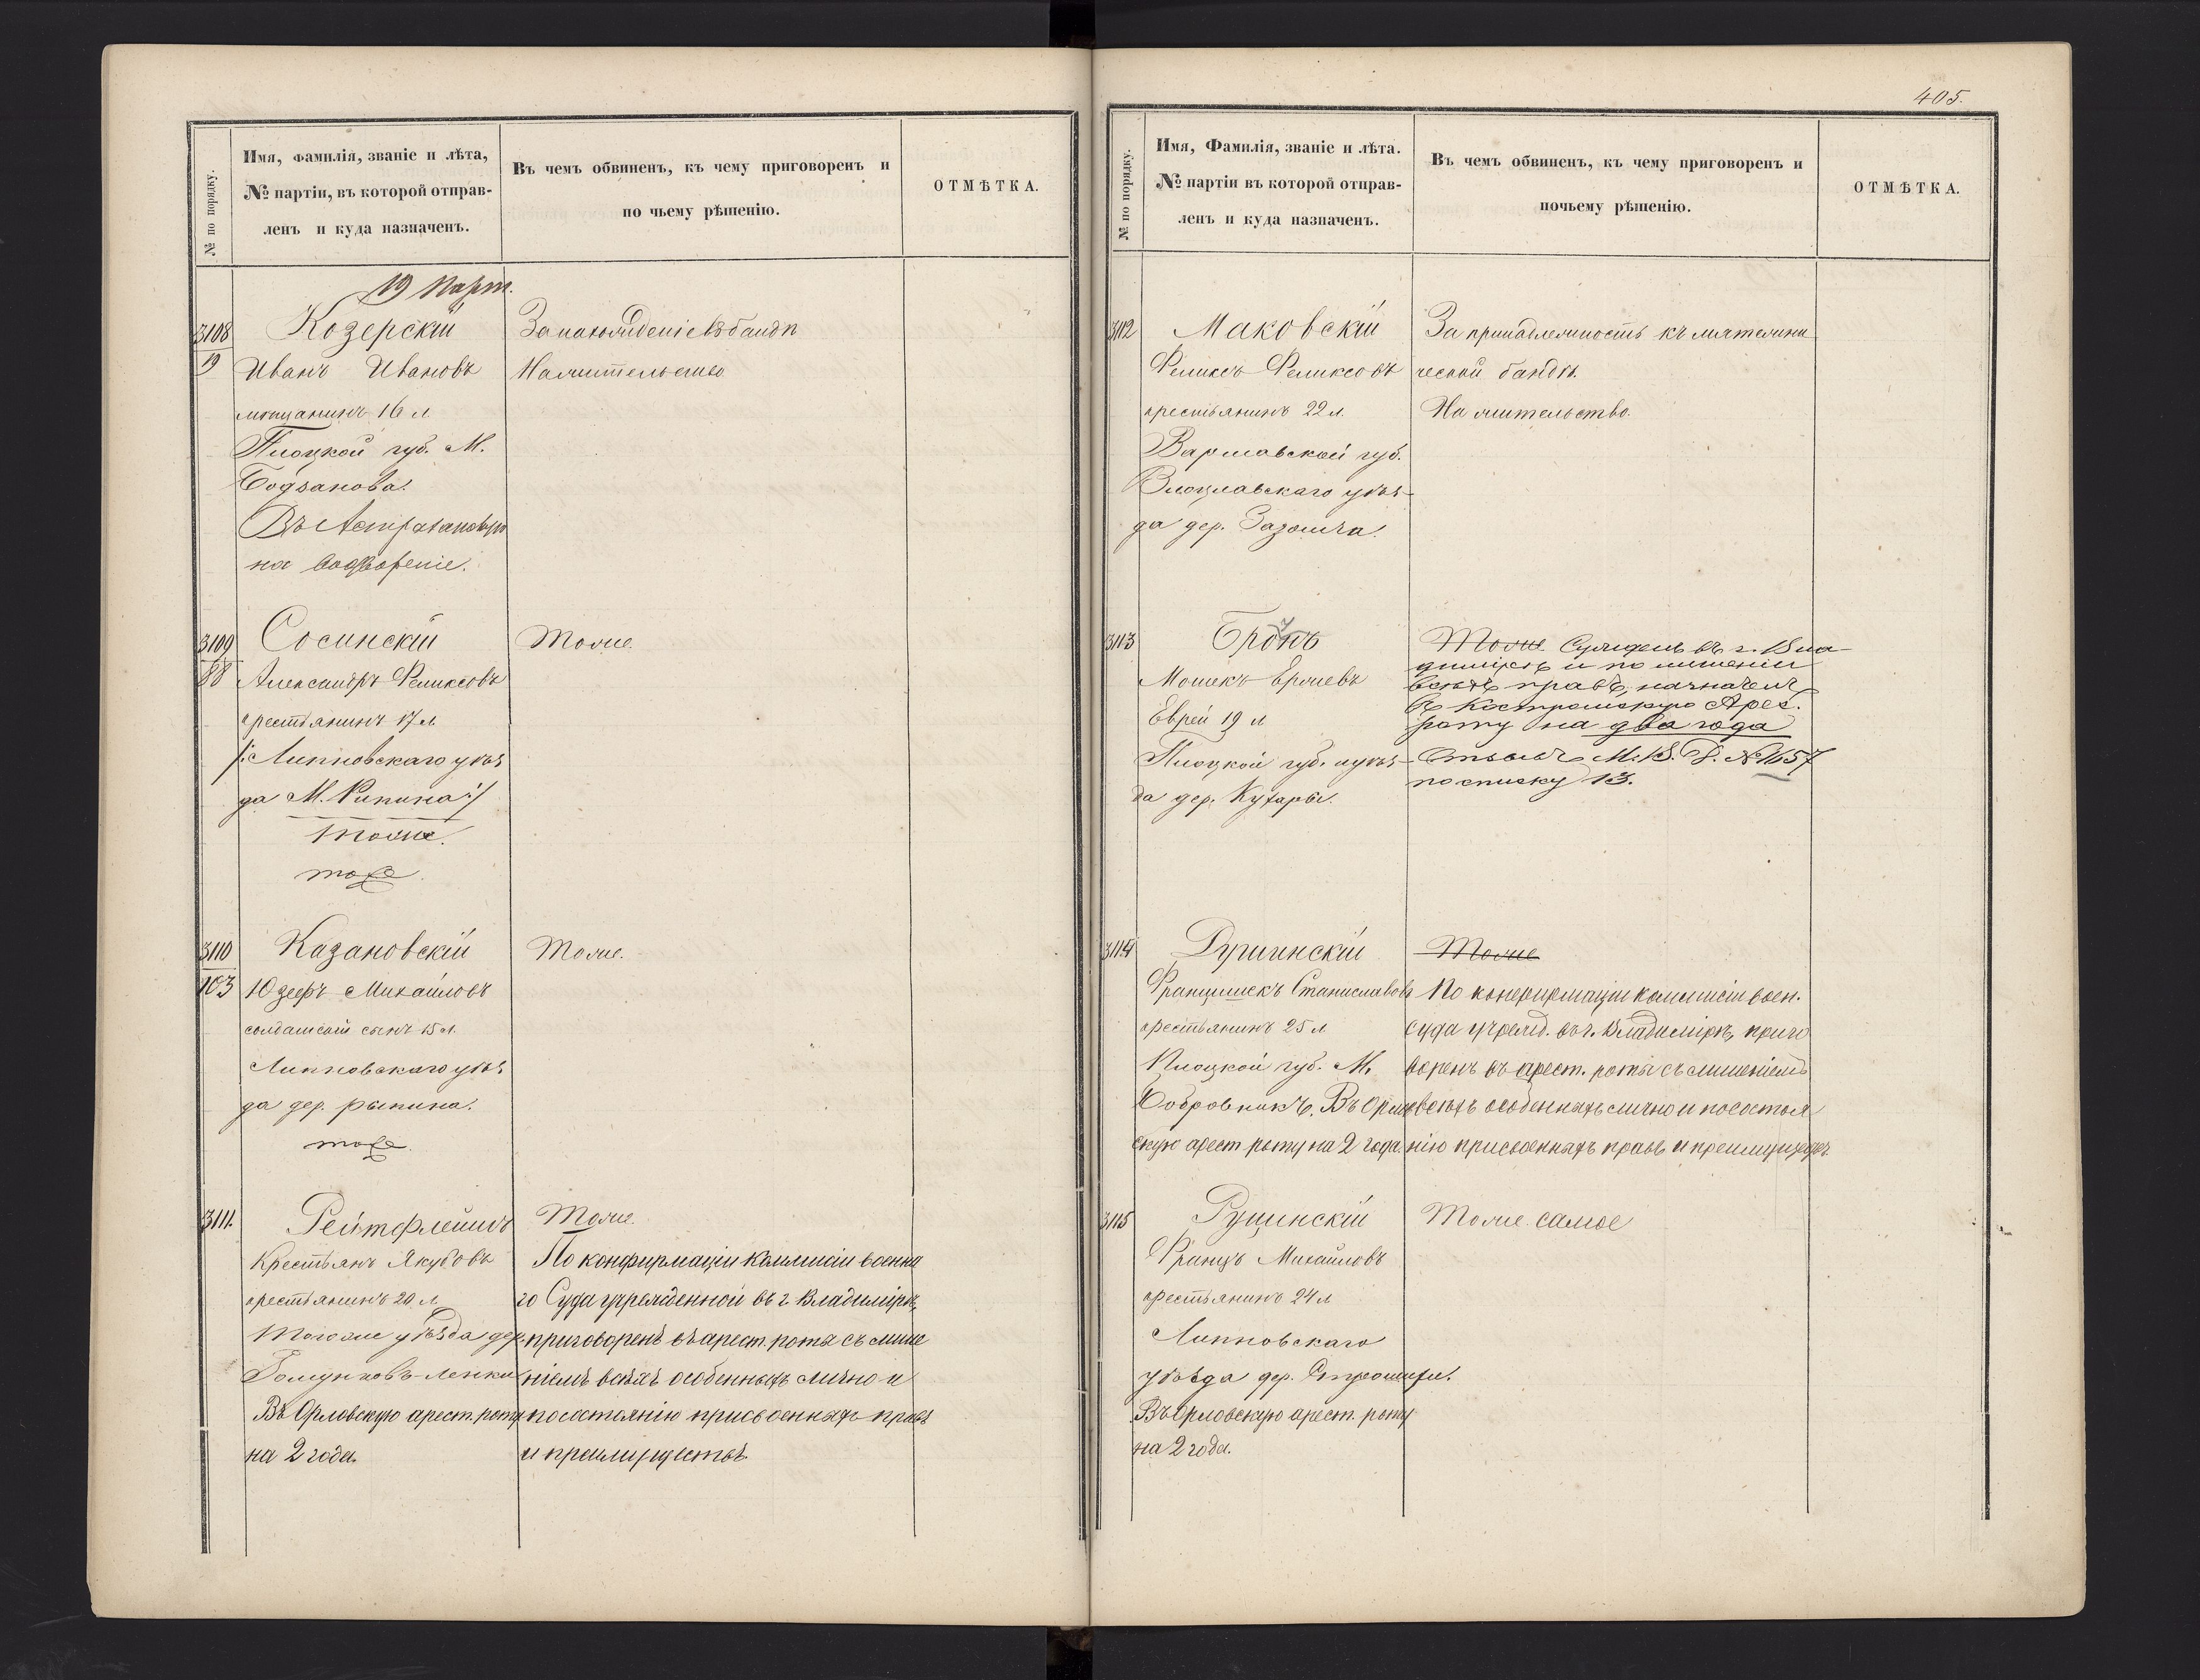 № по порядку.
Имя, фамилія, званіе и лѣта,
№ партіи, въ которой отправ-
ленъ и куда назначенъ.
Въ чемъ обвиненъ, къ чему приговоренъ и
по чьему рѣшенію.
ОТМѢТКА.
19 Парт.
3108
19
Козерскій
Иванъ Ивановъ
мѣщанинъ 16 л
Плоцкой губ. М.
Бодзанова.
на водвореніе.
За нахожденіе въ бандѣ
На жительство
3109
88
Сосинскій
Александръ Феликсовъ
крестьянинъ 17 л
/: Липновскаго уѣз
да М. Рипина :/
Тоже.
тоже.
Тоже.
3110
103
Казановскій
Юзефъ Михайловъ
солдатскій сынъ 15 л.
Липновскаго уѣз
да дер. рыпина.
тоже.
Тоже.
3111.
Рейтфлейшъ
Крестьянъ Якубовъ
крестьянинъ 20 л
Того же уѣзда дер.
Въ Орловскую арест. роту
на 2 года.
Тоже.
По конфирмаціи Коммисіи военна
го Суда учрежденной въ г. Владимірѣ,
приговоренъ въ арест. роты съ лише
ніемъ всѣхъ особенныхъ лично и
по состоянію присвоенныхъ правъ
и преимуществъ.
405.
№ по порядку.
Имя, Фамилія, званіе и лѣта.
№ партіи въ которой отправ-
ленъ и куда назначенъ.
Въ чемъ обвиненъ, къ чему приговоренъ и
почьему рѣшенію.
ОТМѢТКА.
3112
Маковскій
Феликсъ Феликсовъ
крестьянинъ 22 л.
Варшавской губ.
Влоцлавскаго уѣз-
да дер.
За принадлежность къ мятежни
ческой бандѣ.
На жительство.
3113
Бронъ
Мошекъ Ершевъ
Еврей 19 л
Плоцкой губ. и уѣз-
да дер. Кухары.
Тоже. Сужденъ въ г. Вла-
димірѣ и по лишеніи
всѣхъ правъ, назначенъ
въ Костромскую Арес.
роту на два года
Отзывъ М. В. Д. № 1657
по списку 13.
3114
Францишекъ Станиславовъ
крестьянинъ 25 л
Плоцкой губ. М.
Бобровникъ. Въ Орлов
скую арест. роту на 2 года.
Тоже
По конфирмаціи коммисіи воен.
суда учрежд. въ г. Владимірѣ, приго
воренъ въ арест. роты съ лишеніемъ
всѣхъ особенныхъ лично и по состоя
нію присвоенныхъ правъ и преимуществъ.
3115
Руцинскій
Францъ Михайловъ
крестьянинъ 24 л
Липновскаго
уѣзда дер.
Въ Орловскую арест. роту
на 2 года.
Тоже самое